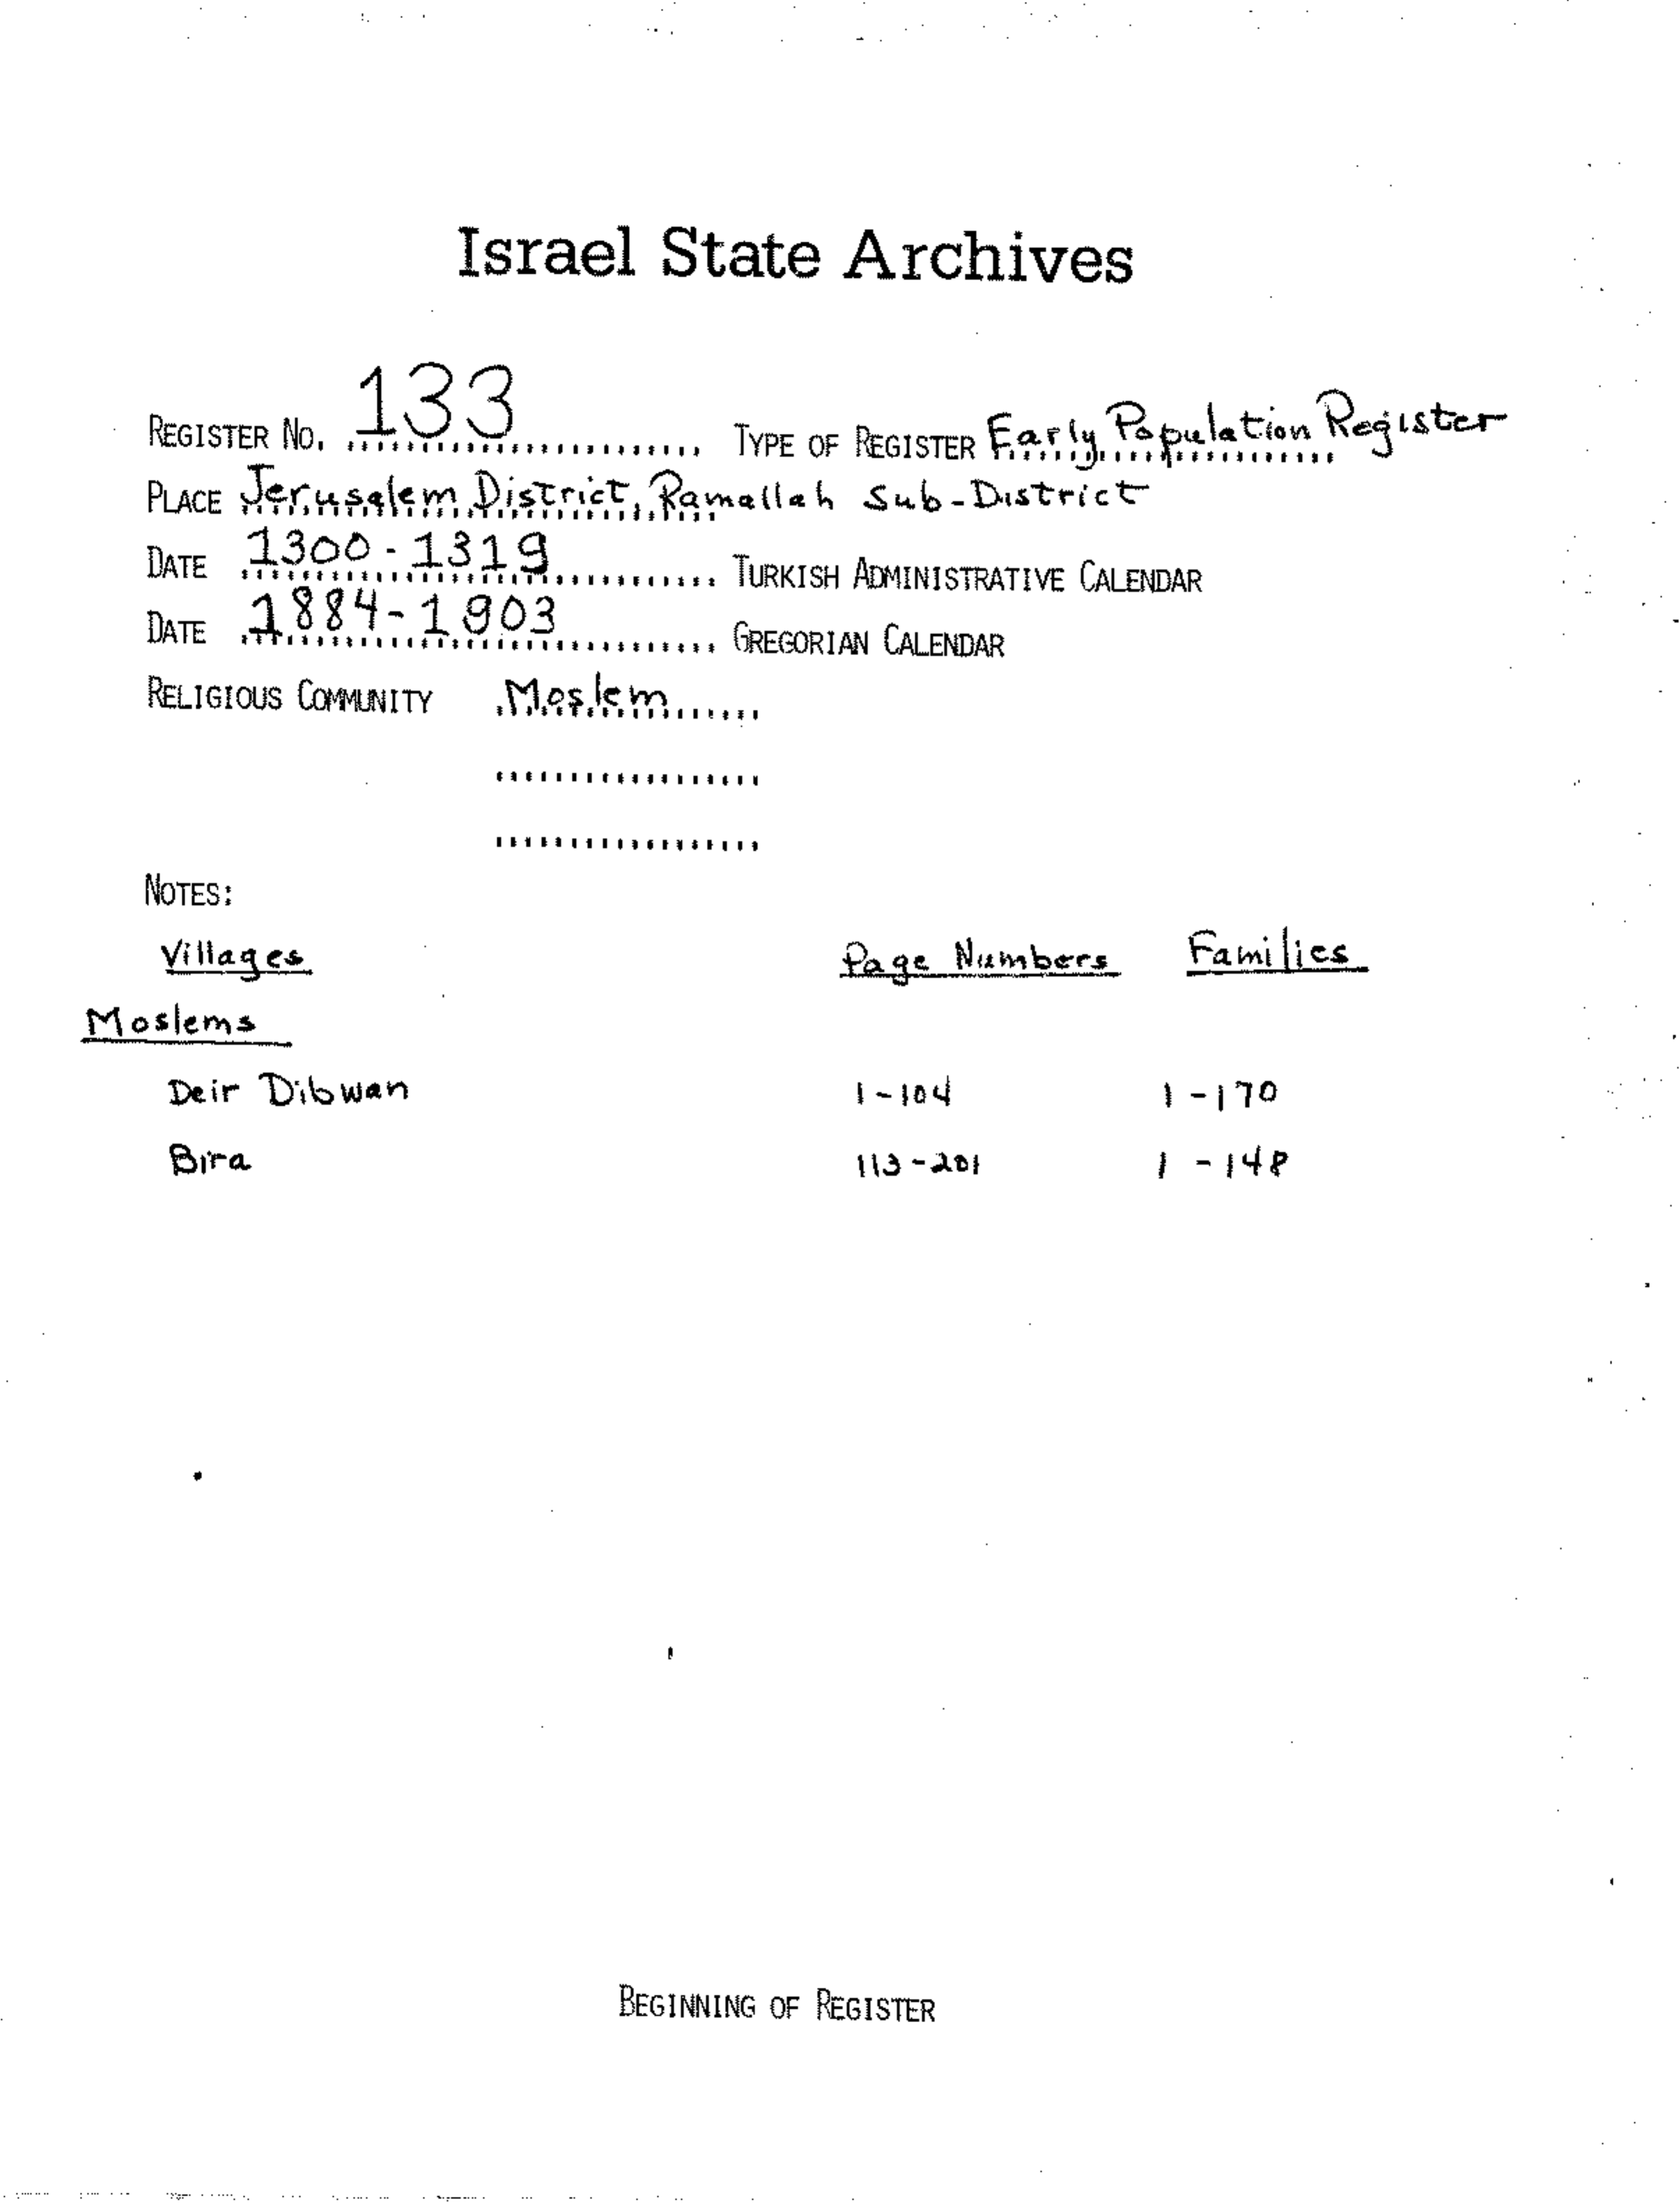 Israel State Archives
REGISTER NO. 133 TYPE OF REGISTER Early Population Register
PLACE Jerusalem District, Ramallah Sub-District
DATE 1300-1319 TURKISH ADMINISTRATIVE CALENDAR
DATE 1884-1903 GREGORIAN CALENDAR
RELIGIOUS COMMUNITY Moslem
NOTES:
Villages Page Numbers Families
Moslems
Deir Dibwan 1-104 1-170
Bira 113-201 1-148
BEGINNING OF REGISTER